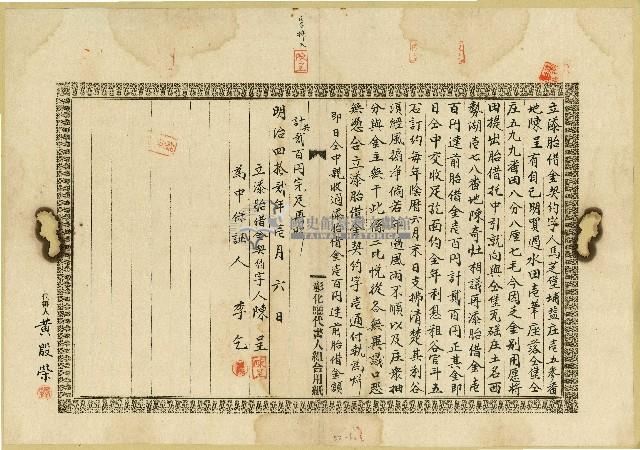 立添胎借金契約字人馬芝堡埔鹽庄壱五參番
地陳呈有自己明買過水田壱筆庄落仝堡仝
庄五九九番田八分八厘七毛今因乏金別用愿將
田提出胎借托中引就向與仝堡瓦磘庄土名西
勢湖壱七八番地陳奇灶相議再添胎借金壱
百円達前胎借金壱百円計貳百円正其金即
日仝中交收足訖面約全年利息租谷官斗五
石訂約每年陰曆六月末日支拂清楚其利谷
須經風搧凈倘若
分與金主無干此係二比悅從各無異議口恐
無憑合立添胎借金契約字壱通付執為炤
即日仝中親收過添胎借金壱百円達前胎借金額
計共貳百円完足再炤
明治四拾貳年壱月六日
立添胎借金契約字人 陳呈
為中保認人 李乞
彰化廳代書人組合用紙
代書人 黃殷榮
陳呈